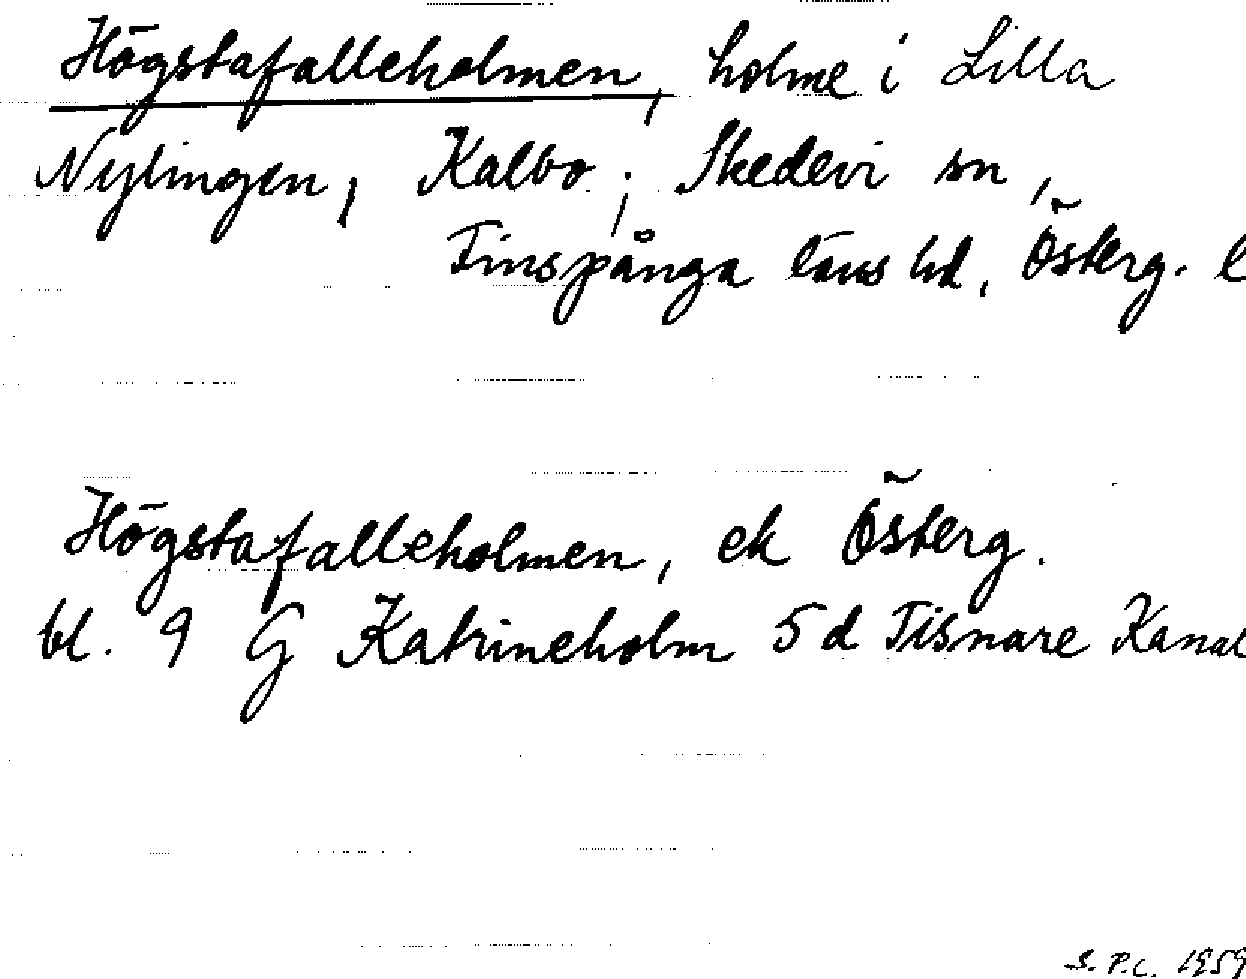 Högstafalleholmen, holme i Lilla
Nylingen, Kalbo; Skedevi sn,
Finspånga läns hd, Österg. l
Högstafalleholmen, ek Österg.
bl. 9 G Katrineholm 5d Tisnare Kanal
S. P.C. 1959